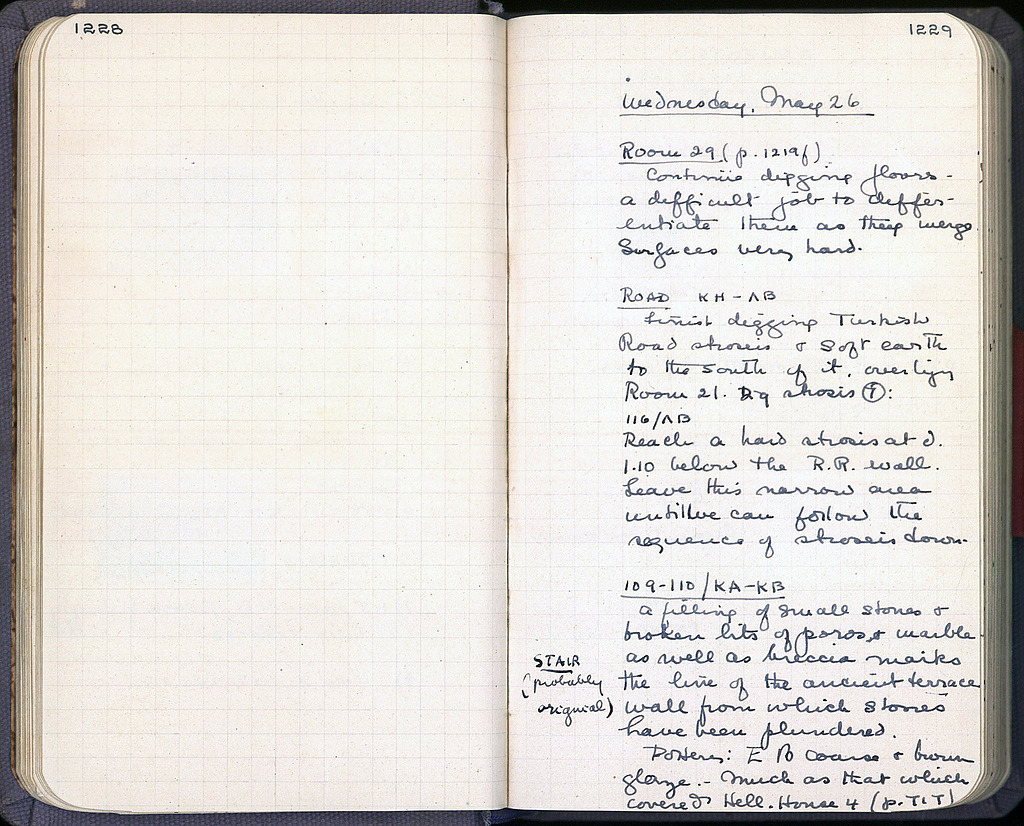 1228
1229
Wednesday, May 26
Room 29 (p. 1219f)
Continue digging floors -
a difficult job to differ-
entiate them as they merge.
Surfaces very hard.
ROAD KH - ΛB
Finish digging Turkish
Road strosis & soft earth
to the south of it, overlying
Room 21. Dig strosis ①:
116/ΛB
Reach a hard strosis at d.
1.10 below the R.R. wall.
Leave this narrow area
until we can follow the
sequence of stroseis down.
109-110/KA-KB
A filling of small stones &
broken bits of poros & marble
as well as breccia marks
the line of the ancient terrace
wall from which stones
have been plundered.
STAIR
(probably
original)
Pottery: E B coarse & brown
glaze. - Much as that which
covered Hell. House 4 (p.